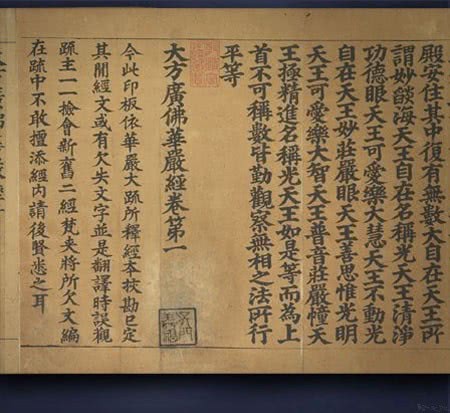 殿安住其中復有無數大自在天王所
謂妙燄海天王自在名稱光天王清淨
功德眼天王可愛樂大慧天王不動光
自在天王妙莊嚴眼天王善思惟光明
天王可愛樂大智天王普音莊嚴幢天
王極精進名稱光天王如是等而為上
首不可稱數皆勤觀察無相之法所行
平等
大方廣佛華嚴經卷第一
今此印板依華嚴大疏所釋經本挍勘已定
其間經文或有欠失文字並是翻譯時誤觀
疏主一一檢會新舊二經梵夾將所欠文編
在疏中不敢擅添經內請後賢悉之耳